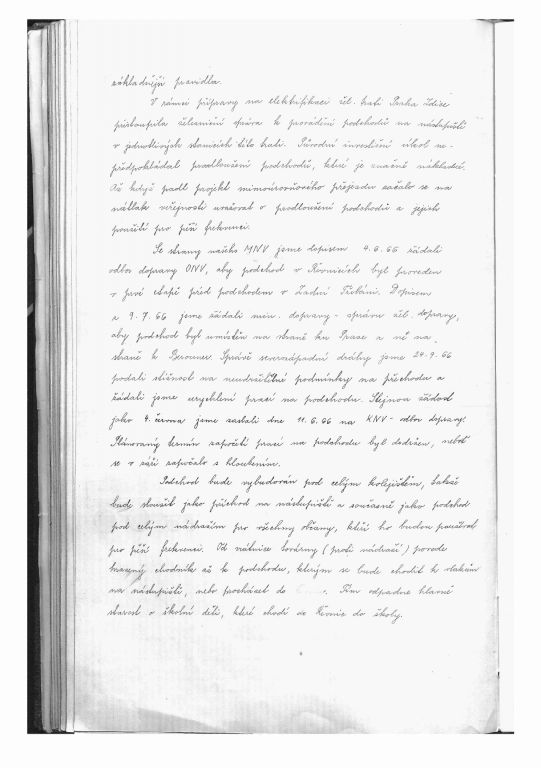 základnější pravidla.
V rámci přípravy na elektrifikaci žel. trati Praha Zdice
přistoupila železniční správa k provádění podchodů na nástupiště
v jednotlivých stanicích této trati. Původní investiční úkol ne-
předpokládal prodloužení podchodů, které je značně nákladné.
Až když padl projekt mimoúrovňového přejezdu začalo se na
nátlak veřejnosti uvažovat o prodloužení podchodů a jejich
použití pro pěší frekvenci.
Ze strany našeho MNV jsme dopisem 4.6.66 žádali
odbor dopravy ONV, aby podchod v Řevnicích byl proveden
v prvé etapě před podchodem v Zadní Třebáni. Dopisem
z 9.7.66 jsme žádali min. dopravy - správu žel. dopravy,
aby podchod byl umístěn na straně ku Praze a ne na
straně k Berounu. Správě severozápadní dráhy jsme 24.9.66
podali stížnost na neudržitelné podmínky na přechodu a
žádali jsme urychlení prací na podchodu. Stejnou žádost
jako 4. června jsme zaslali dne 11.6.66 na KNV - odbor dopravy.
Plánovaný termín započetí prací na podchodu byl dodržen, neboť
se v září započalo s hloubením.
Podchod bude vybudován pod celým kolejištěm, takže
bude sloužit jako příchod na nástupiště a současně jako podchod
pod celým nádražím pro všechny občany, kteří ho budou používat
pro pěší frekvenci. Od silnice továrny (proti nádraží) povede
chodník až k podchodu, kterým se bude chodit k vlakům
na nástupiště, nebo procházet do. Tím odpadne hlavně
starost o školní děti, které chodí ze Řevnic do školy.